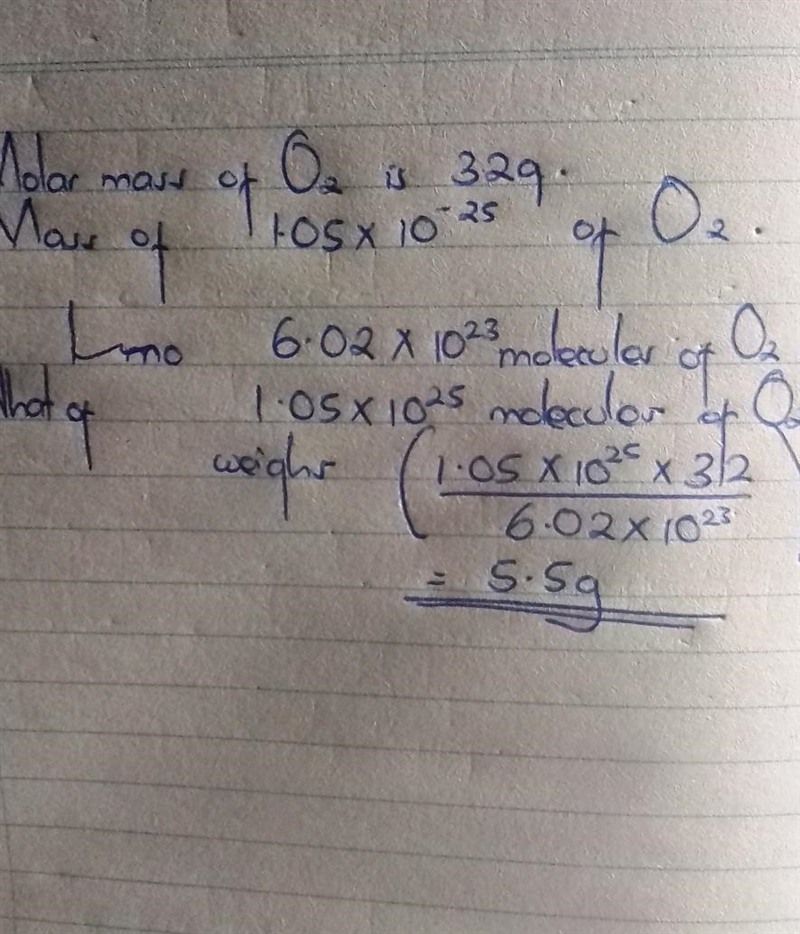 Molar mass of O₂ is 32g.
Mass of 1.05 × 10⁻²⁵ of O₂.
1mo 6.02 × 10²³ molecules of O₂
That of 1.05 × 10²⁵ molecules of O₂
weighs (1.05 × 10²⁵ × 32
6.02 × 10²³
= 5.5g